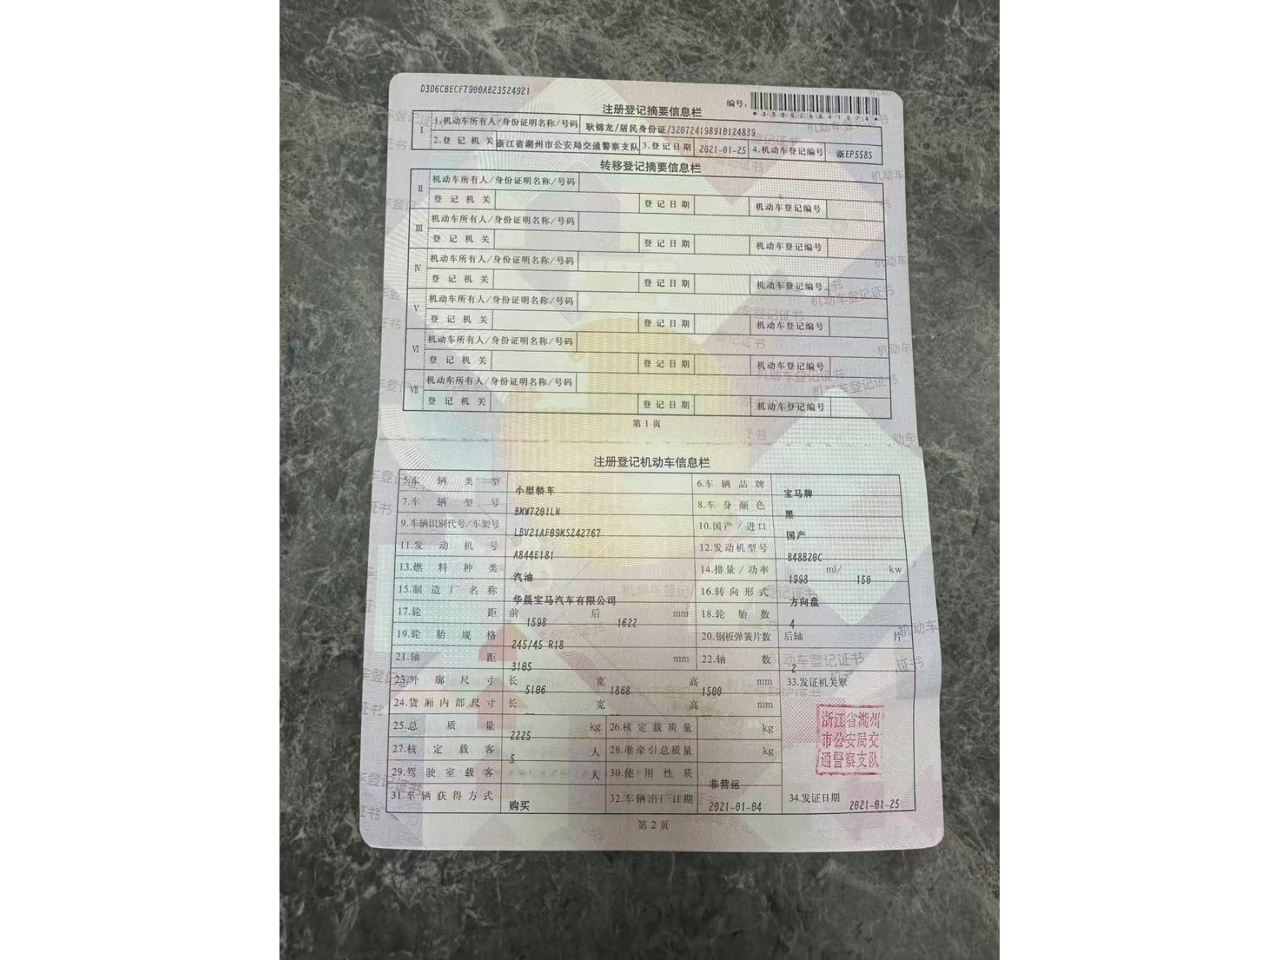 D3D6CBECF7900AB23524921
编号:
注册登记摘要信息栏
I 1.机动车所有人/身份证明名称/号码 耿锦龙/居民身份证/320724198910124839
2.登记机关 浙江省湖州市公安局交通警察支队 3.登记日期 2021-01-25 4.机动车登记编号 浙EP5585
转移登记摘要信息栏
II 机动车所有人/身份证明名称/号码
登记机关 登记日期 机动车登记编号
III 机动车所有人/身份证明名称/号码
登记机关 登记日期 机动车登记编号
IV 机动车所有人/身份证明名称/号码
登记机关 登记日期 机动车登记编号
V 机动车所有人/身份证明名称/号码
登记机关 登记日期 机动车登记编号
VI 机动车所有人/身份证明名称/号码
登记机关 登记日期 机动车登记编号
VII 机动车所有人/身份证明名称/号码
登记机关 登记日期 机动车登记编号
第1页
注册登记机动车信息栏
5.车辆类型 小型轿车 6.车辆品牌 宝马牌
7.车辆型号 BMW7201LN 8.车身颜色 黑
9.车辆识别代号/车架号 LBV21AF09MSZ42767 10.国产/进口 国产
11.发动机号 A844E181 12.发动机型号 B48B20C
13.燃料种类 汽油 14.排量/功率 1998 ml/ 150 kw
15.制造厂名称 华晨宝马汽车有限公司 16.转向形式 方向盘
17.轮距 前 1598 后 1622 mm 18.轮胎数 4
19.轮胎规格 245/45 R18 20.钢板弹簧片数 后轴 片
21.轴距 3105 mm 22.轴数 2
23.外廓尺寸 长 5106 宽 1868 高 1500 mm 33.发证机关章
24.货厢内部尺寸 长 宽 高 mm
浙江省湖州
市公安局交
通警察支队
25.总质量 2225 kg 26.核定载质量 kg
27.核定载客 5 人 28.准牵引总质量 kg
29.驾驶室载客 人 30.使用性质 非营运
31.车辆获得方式 购买 32.车辆出厂日期 2021-01-04 34.发证日期 2021-01-25
第2页